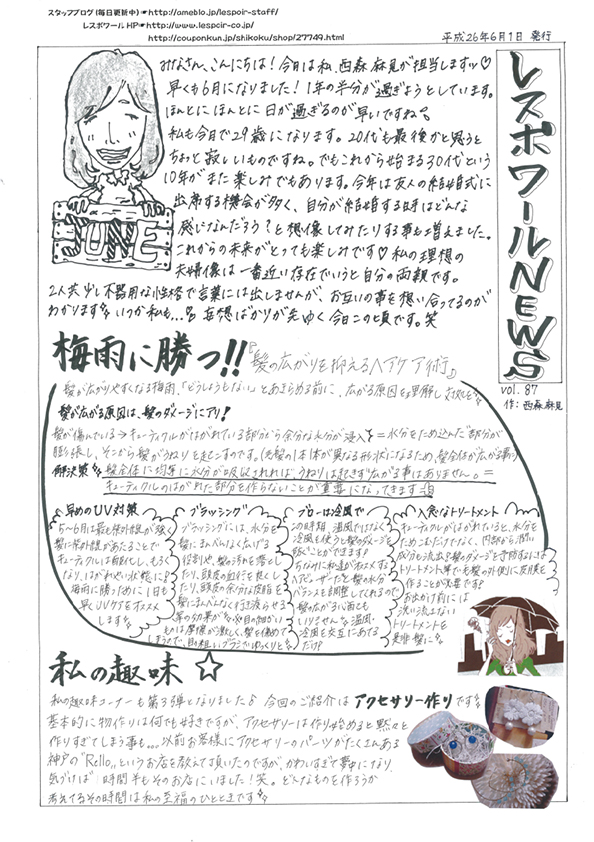 スタッフブログ(毎日更新中)☞http://ameblo.jp/lespoir-staff/
レスポワール HP☞http://www.lespoir-co.jp/
http://couponkun.jp/shikoku/shop/27749.html
平成26年6月1日 発行
レスポワールNEWS
vol. 87
作：西森麻見
みなさん、こんにちは！今月は私、西森 麻見が担当しますッ♡
早くも6月になりました！1年の半分が過ぎようとしています。
ほんとにほんとに日が過ぎるのが早いですね。
私も今月で29歳になります。20代も最後かと思うと
ちょっと寂しいものですね。でもこれから始まる30代という
10年がまた楽しみでもあります。今年は友人の結婚式に
出席する機会が多く、自分が結婚する時はどんな
感じなんだろう？と想像してみたりする事も増えました。
これからの未来がとっても楽しみです♡ 私の理想の
夫婦像は一番近い存在でいうと自分の両親です。
2人共少し不器用な性格で言葉には出しませんが、お互いの事を想い合ってるのが
わかります いつか私も… 妄想ばかりが先ゆく今日この頃です。笑
JUNE
梅雨に勝つ!!『髪の広がりを抑えるヘアケア術』
髪が広がりやすくなる梅雨、「どうしようもない」とあきらめる前に、広がる原因を理解し対処を
髪が広がる原因は、髪のダメージにアリ！
髪が傷んでいる→キューティクルがはがれている部分から余分な水分が侵入 =水分をため込んだ部分が
膨張し、そこから髪がうねりを起こすのです。(元髪の1本1本が異なる形状になるため、髪全体が広がる事に)
解決策 髪全体に均等に水分が吸収されれば、うねりは起きず広がる事はありません。=
キューティクルのはがれた部分を作らないことが重要になってきます
早めのUV対策
5〜6月は最も紫外線が強く
髪に紫外線があたることで
キューティクルは酸化し、もろく
なり、はがれやすい状態に！
梅雨に勝つために1日も
早くUVケアをオススメ
します
ブラッシング
ブラッシングには、水分を
髪にまんべんなく広げる
役割や、髪の汚れを落とし
たり、頭皮の血行を良くし
たり、頭皮の余分な皮脂を
髪にまんべんなく行き渡らせる
等の効果が ※目の細かい
ものは摩擦が激しく、髪を傷めて
しまうので、目の粗いブラシでゆっくりと
ブローは冷風で
この時期、温風ではなく
冷風も使うと髪のダメージを
防ぐことができます！
ちなみに私達がオススメする
ヘアビューザーだと髪の水分
バランスを調整してくれるので
髪が広がる心配も
いりません 温風・
冷風を交互にあてる
だけ♪
入念なトリートメント
キューティクルがはがれていると、水分を
ためこむだけでなく、内部から潤い
成分も流出 髪のダメージを予防するには
トリートメント等で毛髪の外側に皮膜を
作ることが大事です！
お出かけ前には
洗い流さない
トリートメントを
是非 髪に
私の趣味 ☆
私の趣味コーナーも第3弾となりました♪ 今回のご紹介は アクセサリー作り です
基本的に物作りは何でも好きですが、アクセサリーは作り始めると黙々と
作りすぎてしまう事も… 以前お客様にアクセサリーのパーツがたくさんある
神戸の "Rello" というお店を教えて頂いたのですが、かわいすぎて夢中になり、
気づけば 時間半もそのお店にいました！笑。どんなものを作ろうか
考えてるその時間は私の至福のひとときです